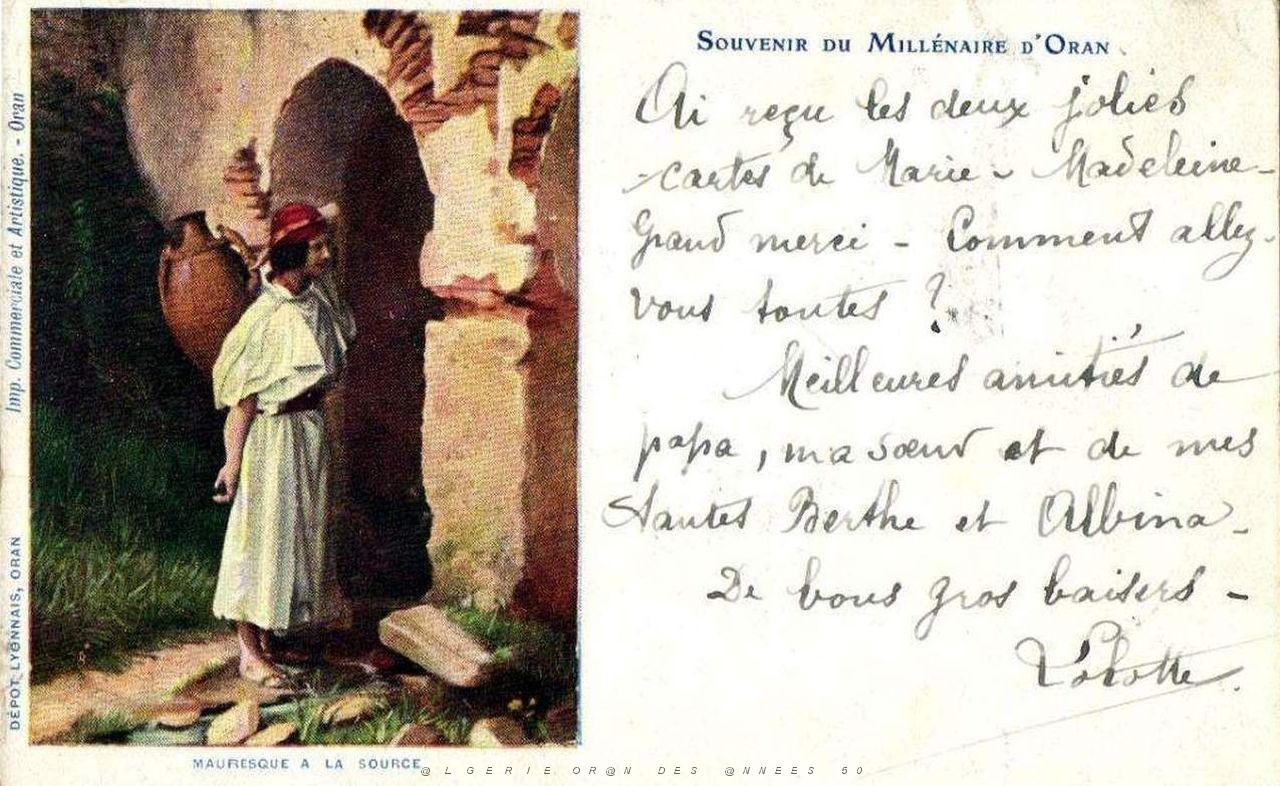 Imp. Commerciale et Artistique. - Oran
DÉPOT LYONNAIS, ORAN
MAURESQUE A LA SOURCE
SOUVENIR DU MILLÉNAIRE D'ORAN
Ai reçu les deux jolies
cartes de Marie-Madeleine-
Grand merci - Comment allez-
vous toutes ?
Meilleures amitiés de
papa, ma sœur et de mes
tantes Berthe et Albina -
De bons gros baisers -
@LGERIE OR@N DES @NNEES 50